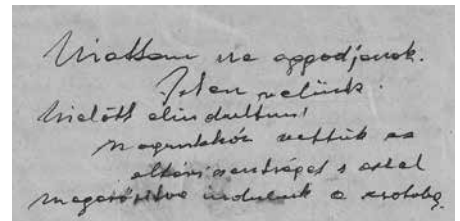 Miattam ne aggodjanak.
Isten velünk.
Mielőtt elindultunk
magunkhoz vettük az
oltáriszentséget s ezzel
megerősítve indulunk a csatába.